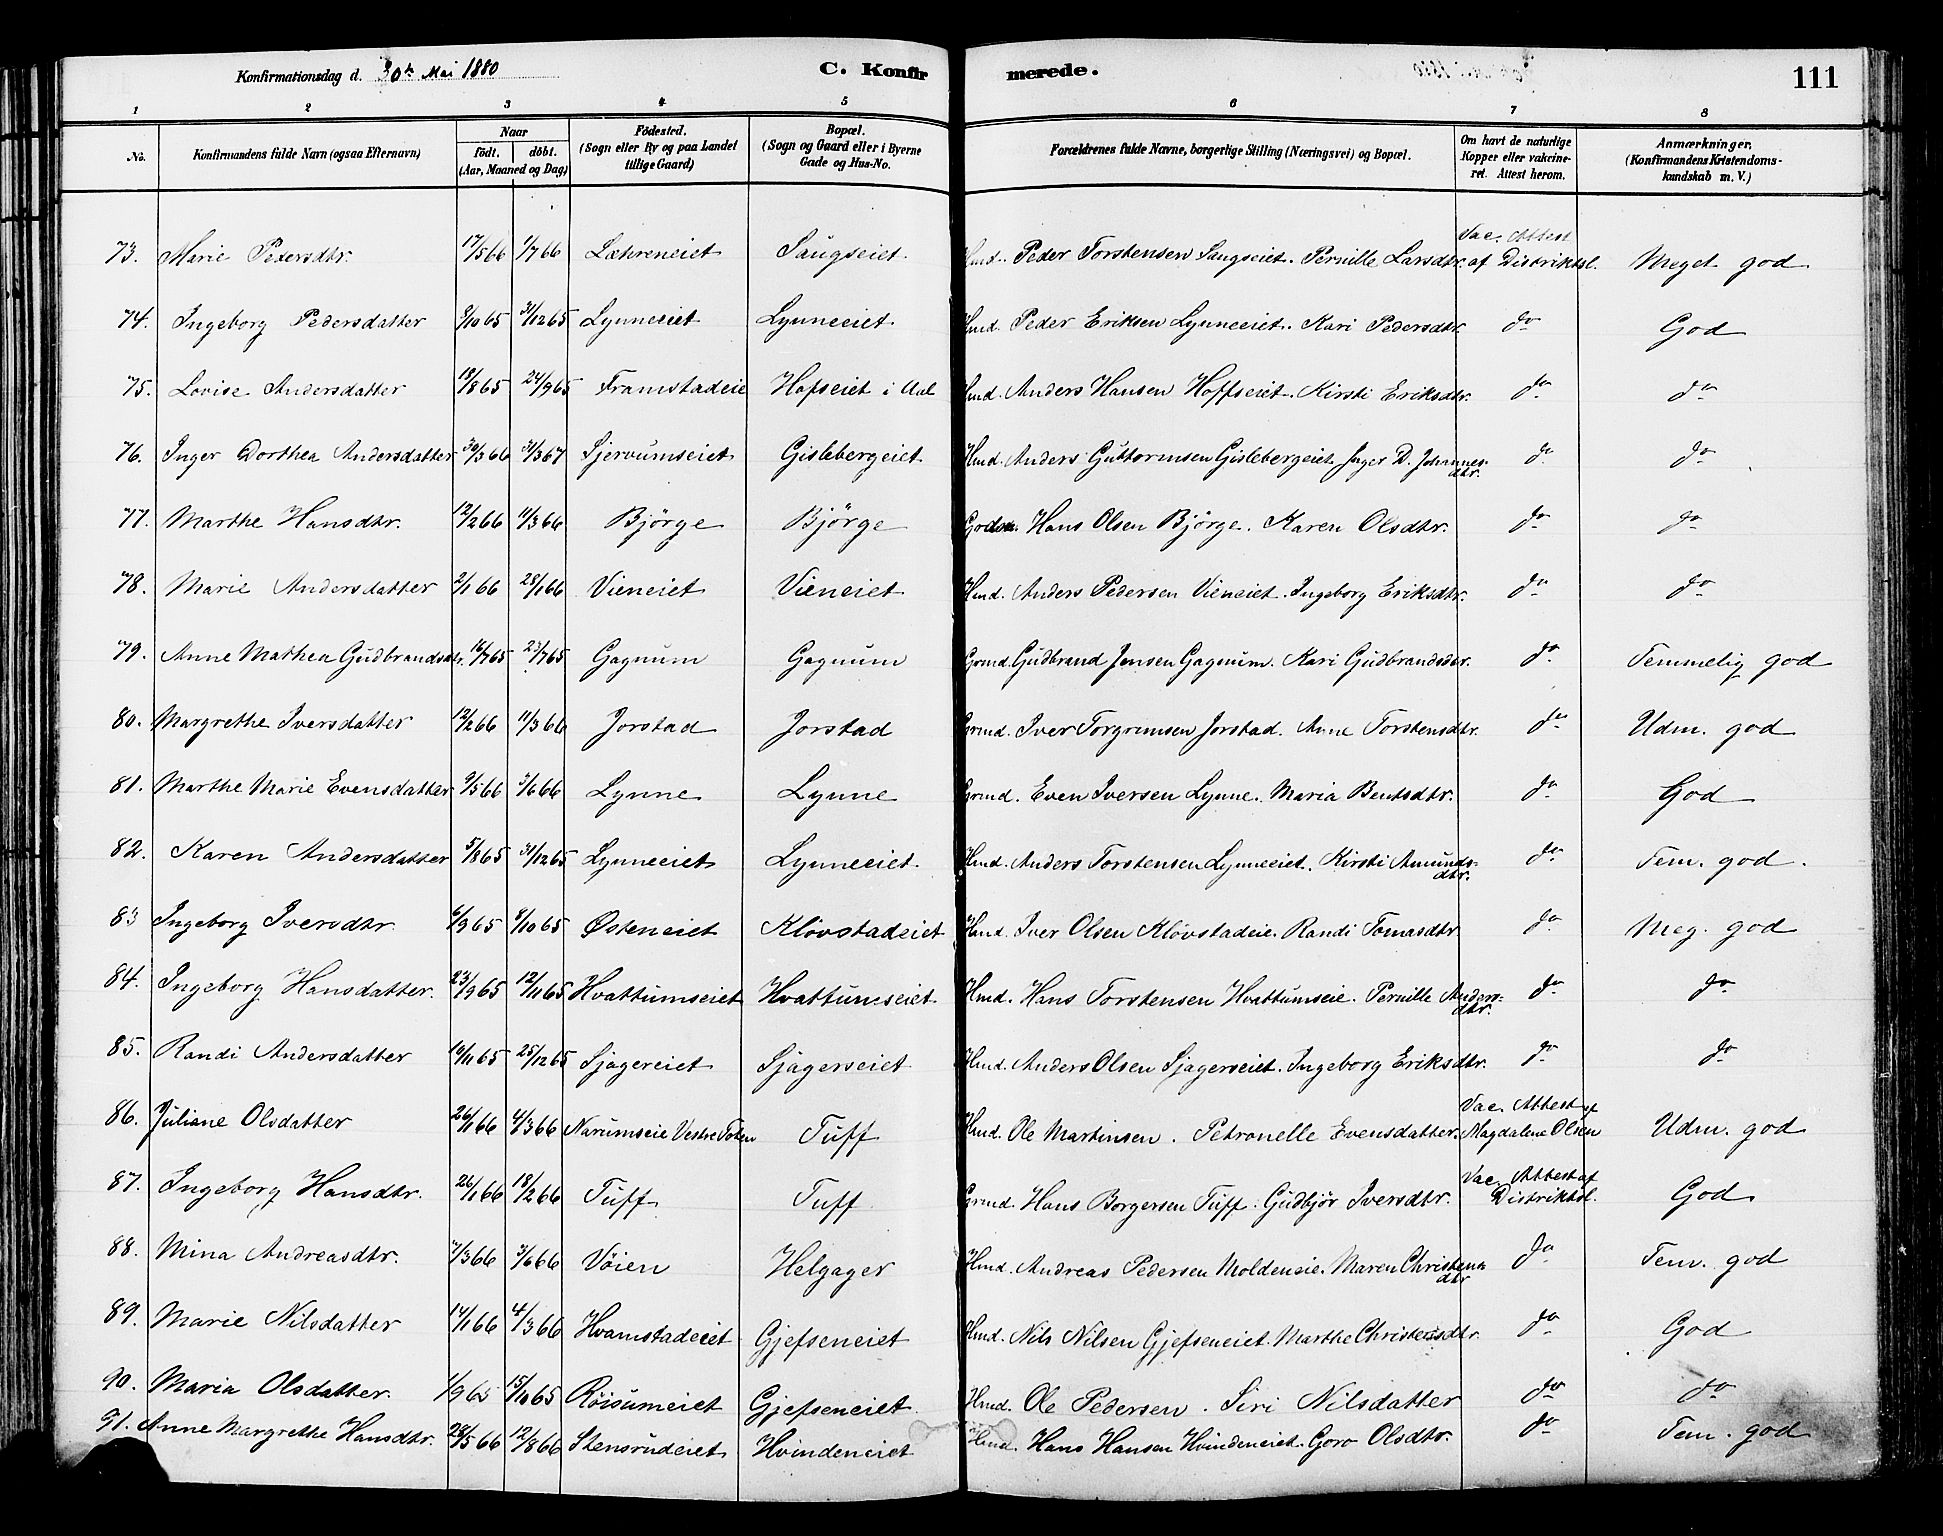 Konfirmationsdag d. 30te Mai 1880 C. Konfir merede. 111
1 2 3 4 5 6 7 8
No. Konfirmandens fulde Navn (ogsaa Efternavn) Naar født. døbt. (Aar, Maaned og Dag) Fødested. (Sogn eller By og paa Landet tillige Gaard) Bopæl. (Sogn og Gaard eller i Byerne Gade og Hus-No. Forældrenes fulde Navne, borgerlige Stilling (Næringsvei) og Bopæl. Om havt de naturlige Kopper eller vakcineret. Attest herom. Anmærkninger. (Konfirmandens Kristendomskundskab m. V.)
73. Marie Pedersdtr. 17/5 66 1/7 66 Læhreneiet Saugseiet. Hmd. Peder Torstensen Saugseiet. Pernille Larsdtr. Vac. Attest af Distriktsl. Meget god
74. Ingeborg Pedersdatter 9/10 65 31/12 65 Lynneeiet Lynneeiet. Hmd. Peder Eriksen Lynneeiet. Kari Pedersdtr. do God
75. Lovise Andersdatter 19/8 65 24/9 65 Framstadeie Hofseiet i Aal Hmd. Anders Hansen Hoffseiet. Kirsti Eriksdtr. do do
76. Inger Dorthea Andersdatter 30/3 66 31/3 67 Sjervumseiet Gislebergeiet Hmd. Anders Guttormsen Gislebergeiet Inger D. Johannesdtr. do do
77. Marthe Hansdtr. 12/2 66 11/3 66 Bjørge Bjørge Hans Olsen Bjørge. Karen Olsdtr. do do
78. Marie Andersdatter 2/1 66 28/1 66 Vieneiet Vieneiet Hmd. Anders Pedersen Vieneiet. Ingeborg Eriksdtr. do do
79. Anne Mathea Gudbrandsdtr. 16/7 65 23/7 65 Gagnum Gagnum Grmd. Gudbrand Jensen Gagnum. Kari Gudbrandsdtr. do Temmelig god
80. Margrethe Iversdatter 12/2 66 11/3 66 Jorstad Jorstad Grmd. Iver Torgrimsen Jorstad. Anne Torstensdtr. do Udm. god
81. Marthe Marie Evensdatter 9/5 66 3/6 66 Lynne Lynne Grmd. Even Iversen Lynne. Maria Bentsdtr. do God
82. Karen Andersdatter 5/8 65 31/12 65 Lynneeiet Lynneeiet. Hmd. Anders Torstensen Lynneeiet. Kirsti Amundsdtr. do Tem. god.
83 Ingeborg Iversdtr. 6/9 65 8/10 65 Østeneiet Kløvstadeiet Hmd. Iver Olsen Kløvstadeie. Randi Tomasdtr do Meg. god
84. Ingeborg Hansdatter. 23/9 65 12/11 65 Hvattumseiet Hvattumseiet. Hmd. Hans Torstensen Hvattumseie. Pernille Andersdtr. do do
85. Randi Andersdatter 19/11 65 25/12 65 Sjagereiet Sjagerseiet Hmd. Anders Olsen Sjagerseiet. Ingeborg Eriksdtr. do do
86. Juliane Olsdatter 26/1 66 4/3 66 Narumseie Vestre Toten Tuff Hmd. Ole Martinsen. Petronelle Evensdatter. Vac. Attest af Magdalene Olsen Udm. god
87. Ingeborg Hansdtr. 26/1 66 18/2 66 Tuff Tuff Grmd. Hans Borgersen Tuff. Gudbjør Iversdtr. Vac. Attest af Distriktsl. God
88. Mina Andreasdtr. 7/3 66 3/6 66 Vøien Helgager Hmd. Andreas Pedersen Moldeneie. Maren Christensdtr do Tem. god
89. Marie Nilsdatter 14/1 66 4/3 66 Hvamstadeiet Gjefseneiet Hmd. Nils Nilsen Gjefseneiet. Marthe Christensdtr. do God
90. Maria Olsdatter. 1/9 65 15/10 65 Røisumeiet Gjefseneiet. Hmd. Ole Pedersen. Siri Nilsdatter do do
91. Anne Margrethe Hansdtr. 28/5 66 12/8 66 Stensrudeiet Hvindeneiet Hmd. Hans Hansen Hvindeneiet. Goro Olsdtr. do Tem. god